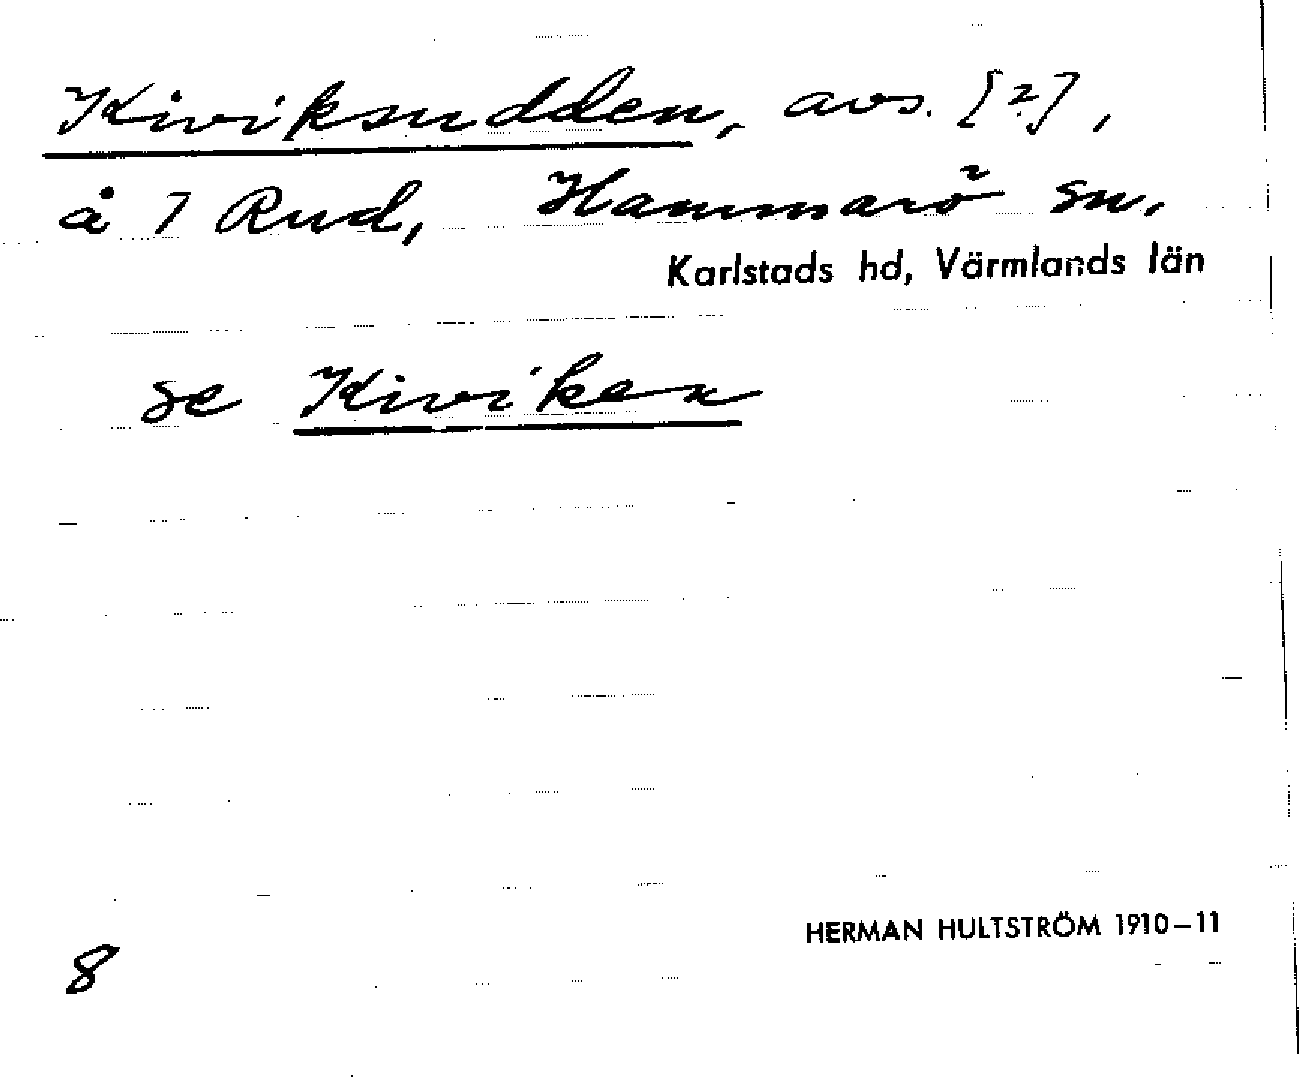 Kiviksudden, avs. [?],
å 7 Rud, Hammarö sn.
Karlstads hd, Värmlands län
se Kiviken
HERMAN HULTSTRÖM 1910–11
8